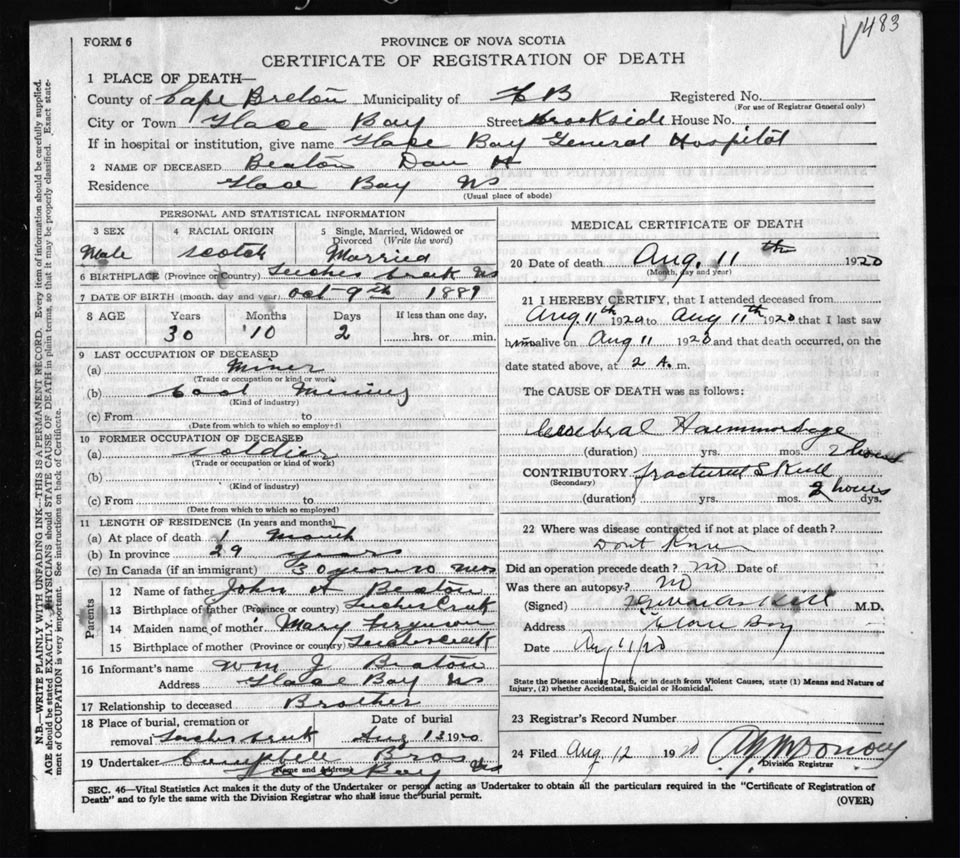 483
FORM 6
PROVINCE OF NOVA SCOTIA
CERTIFICATE OF REGISTRATION OF DEATH
1 PLACE OF DEATH—
County of Cape Breton Municipality of C B Registered No.
(For use of Registrar General only)
City or Town Glace Bay Street Brookside House No.
If in hospital or institution, give name Glace Bay General Hospital
2 NAME OF DECEASED Beaton Dan H
Residence Glace Bay NS
(Usual place of abode)
PERSONAL AND STATISTICAL INFORMATION
3 SEX 4 RACIAL ORIGIN 5 Single, Married, Widowed or Divorced (Write the word)
Male Scotch Married
6 BIRTHPLACE (Province or Country) NS
7 DATE OF BIRTH (month, day and year) Oct 9th 1889
8 AGE Years Months Days If less than one day,
30 10 2 hrs. or min.
9 LAST OCCUPATION OF DECEASED
(a) Miner
(Trade or occupation or kind or work)
(b) Coal Mining
(Kind of industry)
(c) From to
(Date from which to which so employed)
10 FORMER OCCUPATION OF DECEASED
(a) Soldier
(Trade or occupation or kind of work)
(b)
(Kind of industry)
(c) From to
(Date from which to which so employed)
11 LENGTH OF RESIDENCE (In years and months)
(a) At place of death 1 Month
(b) In province 29 years
(c) In Canada (if an immigrant) 30 years 10 mos
Parents
12 Name of father John A Beaton
13 Birthplace of father (Province or country)
14 Maiden name of mother Mary Ferguson
15 Birthplace of mother (Province or country)
16 Informant's name Wm J Beaton
Address Glace Bay NS
17 Relationship to deceased Brother
18 Place of burial, cremation or Date of burial
removal Aug 13 1920
19 Undertaker Campbell Bros
(Name and Address) Glace Bay NS
MEDICAL CERTIFICATE OF DEATH
20 Date of death Aug. 11th 1920
(Month, day and year)
21 I HEREBY CERTIFY, that I attended deceased from
Aug. 11th 1920 to Aug 11th 1920 that I last saw
him alive on Aug 11 1920 and that death occurred, on the
date stated above, at 2 A. m.
The CAUSE OF DEATH was as follows:
Cerebral Haemmorhage
(duration) yrs. mos. 2 hours
CONTRIBUTORY fractured Skull
(Secondary)
(duration) yrs. mos. 2 hours dys.
22 Where was disease contracted if not at place of death?
Dont Know
Did an operation precede death? No Date of
Was there an autopsy? No
(Signed) M.D.
Address Glace Bay
Date Aug 11/20
State the Disease causing Death, or in death from Violent Causes, state (1) Means and Nature of
Injury, (2) whether Accidental, Suicidal or Homicidal.
23 Registrar's Record Number
24 Filed Aug 12 1920
Division Registrar
SEC. 46—Vital Statistics Act makes it the duty of the Undertaker or person acting as Undertaker to obtain all the particulars required in the "Certificate of Registration of
Death" and to fyle the same with the Division Registrar who shall issue the burial permit.
(OVER)
N.B.—WRITE PLAINLY WITH UNFADING INK—THIS IS A PERMANENT RECORD. Every item of information should be carefully supplied.
AGE should be stated EXACTLY. PHYSICIANS should STATE CAUSE OF DEATH in plain terms, so that it may be properly classified. Exact state-
ment of OCCUPATION is very important. See instructions on back of Certificate.